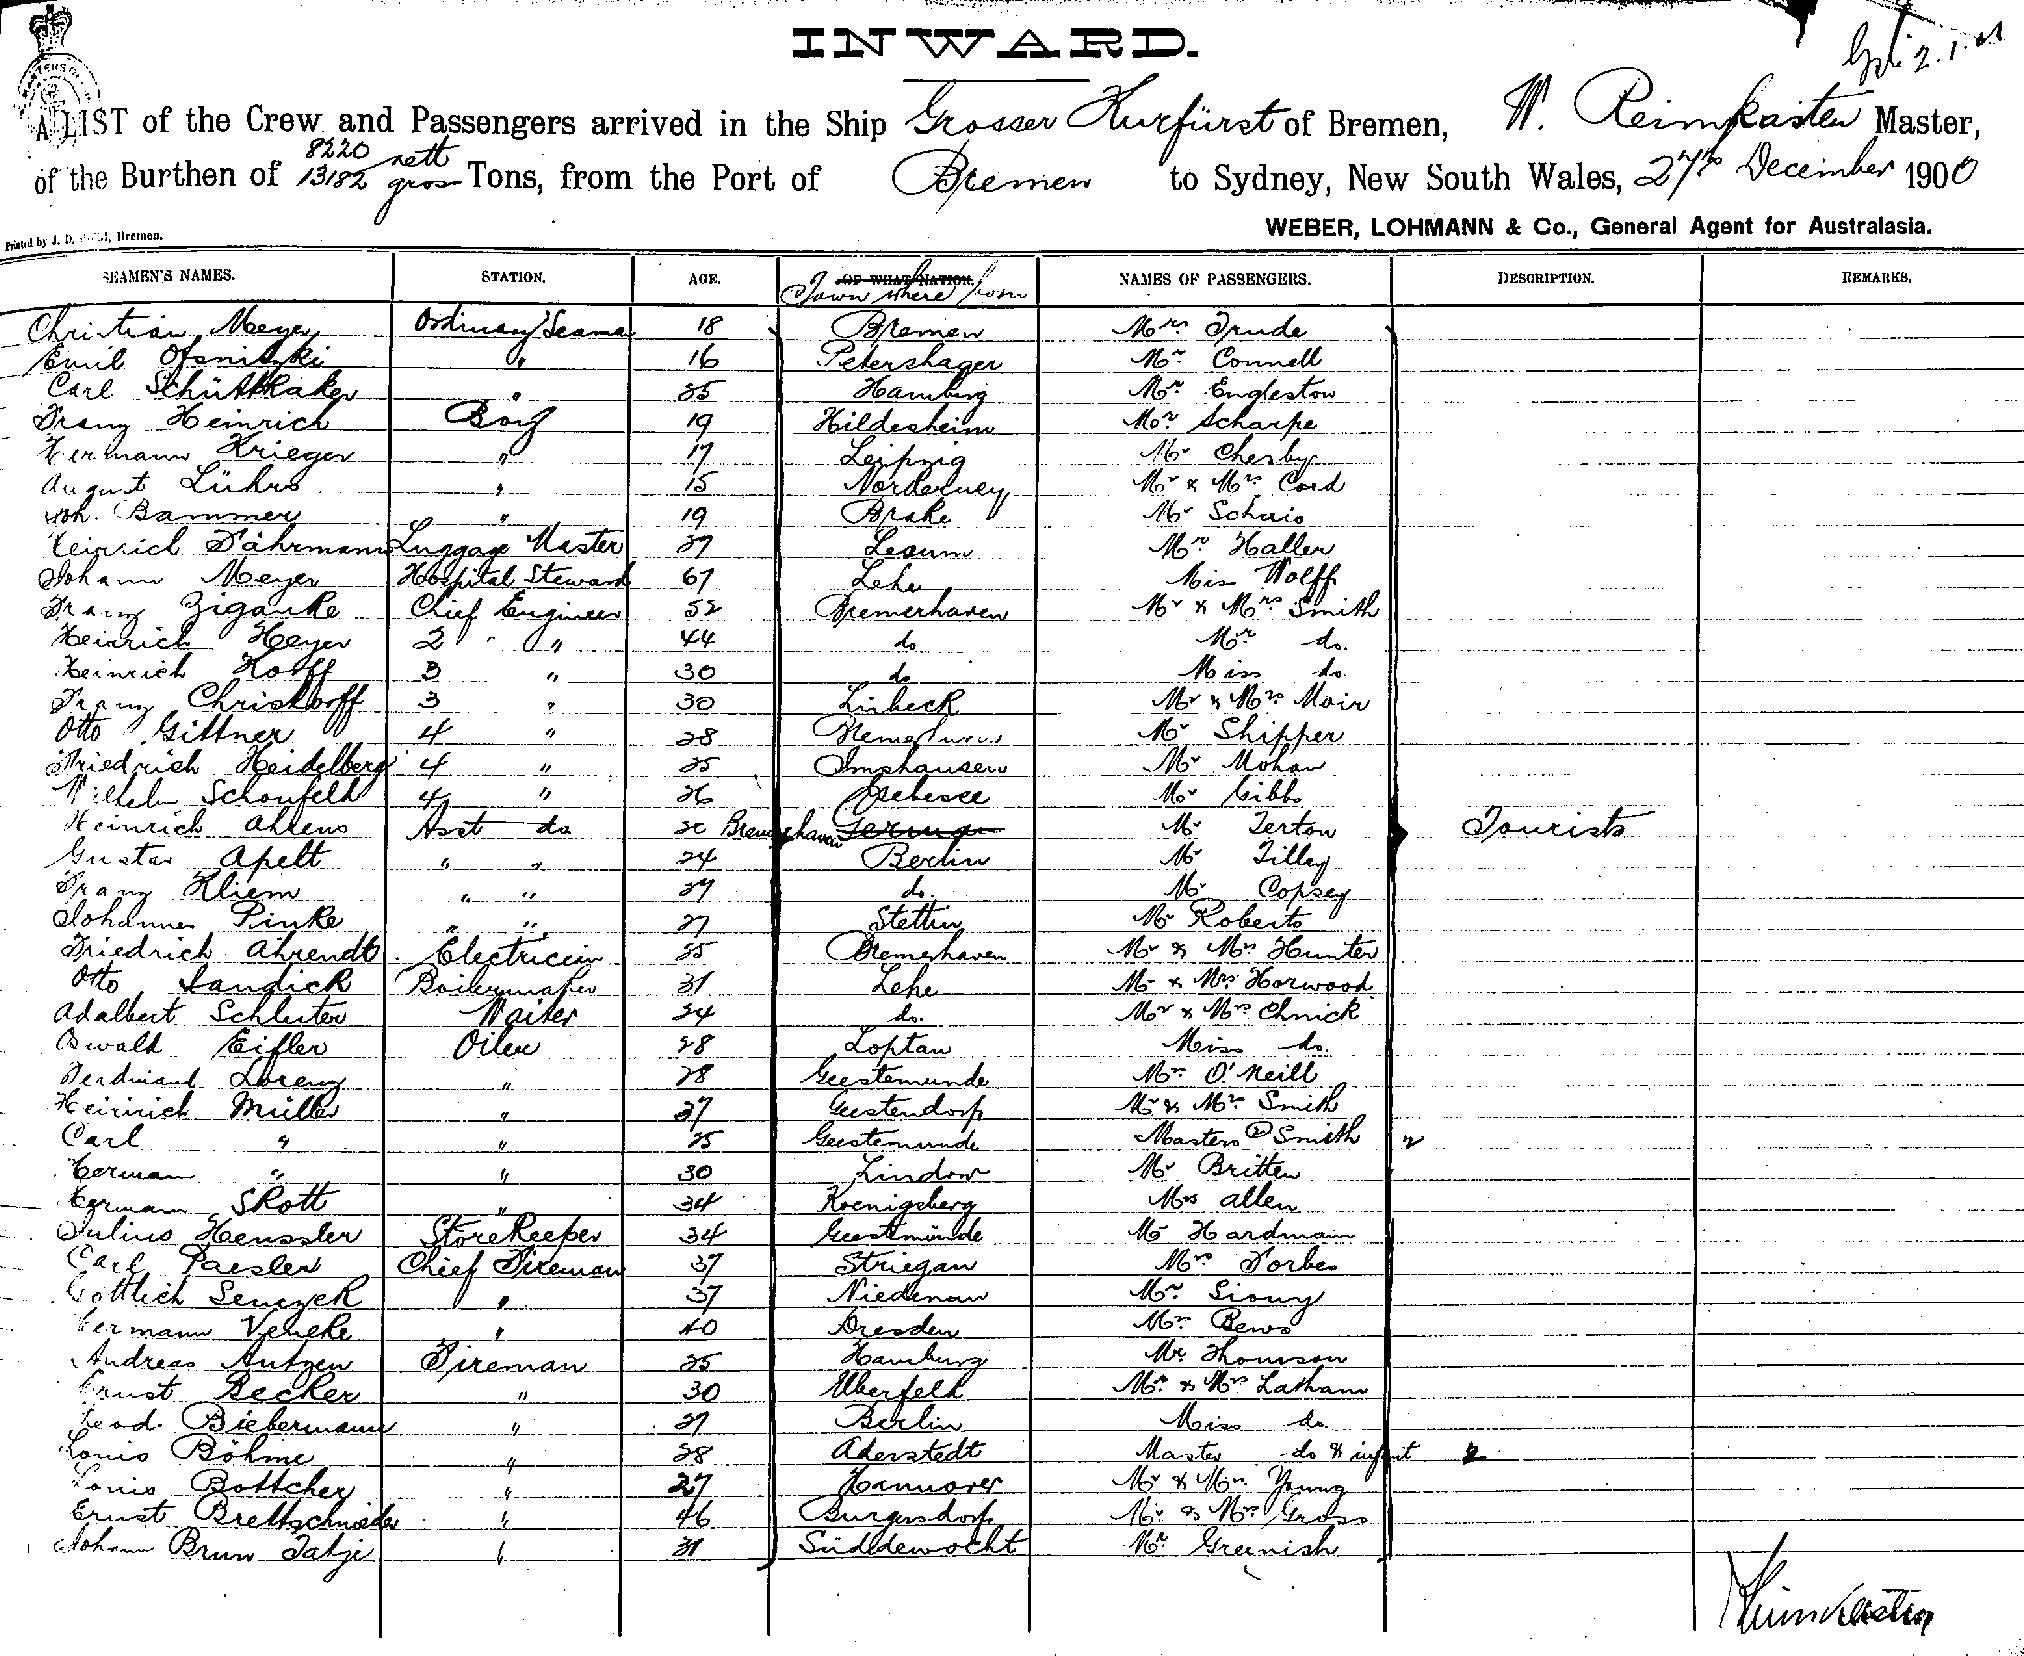 INWARD.
A LIST of the Crew and Passengers arrived in the Ship Grosser Kurfürst of Bremen, W. Reimkasten Master,
8220 nett
of the Burthen of 13182 gross Tons, from the Port of Bremen to Sydney, New South Wales, 27th December 1900
WEBER, LOHMANN & Co., General Agent for Australasia.
Printed by J. D. Bremen.
SEAMEN'S NAMES. STATION. AGE. OF WHAT NATION. NAMES OF PASSENGERS. DESCRIPTION. REMARKS.
Town where from
Christian Meyer Ordinary Seaman 18 Bremen Mrs Trude
Emil " 16 Petershagen Mr Connell
Carl " 25 Hamburg Mr Engleston
Franz Heinrich Boy 19 Hildesheim Mr Scharpe
Hermann Krieger " 17 Leipzig Mr Chesby
August Lührs " 15 Norderney Mr & Mrs Cord
Joh. Bammer " 19 Brake Mr
Heinrich Fährmann Luggage Master 27 Lesum Mr Haller
Johann Meyer Hospital Steward 67 Lehe Miss Wolff
Franz Ziganke Chief Engineer 52 Bremerhaven Mr & Mrs Smith
Heinrich Heyer 2 " 44 do Mr do.
Heinrich Kolff 3 " 30 do Miss do.
Franz Christoff 3 " 30 Lübeck Mr & Mrs Moir
Otto Gittner 4 " 28 Mr Shipper
Friedrich Heidelberg 4 " 25 Imshausen Mr Mohan
Wilhelm Schonfeld 4 " 26 Mr Gibbs
Heinrich Ahlens Asst do 20 Bremerhaven Mr Terton Tourists
Gustav Apelt " " 24 Berlin Mr Tilley
Franz Kliem " " 27 do. Mr Copsey
Johannes Pinke " " 27 Stettin Mr Roberts
Friedrich Ahrendt Electrician 25 Bremerhaven Mr & Mrs Hunter
Otto Landick Boilermaker 31 Lehe Mr & Mrs Horwood
Adalbert Schluter Waiter 24 do. Mr & Mrs Chnick
Oswald Eifler Oiler 28 Loptau Miss do.
Ferdinand Lorenz " 28 Geestemunde Mr O'Neill
Heinrich Müller " 27 Geestendorf Mr & Mrs Smith
Carl " " 25 Geestemunde Masters (2) Smith 2
Herman " " 30 Lindow Mr Britten
Hermann Skott " 34 Koenigsberg Mrs Allen
Julius Henssler Storekeeper 34 Geestemünde Mr Hardman
Carl Paesler Chief Fireman 37 Striegau Mrs Forbes
Gottlieb Senczek " 37 Niedenau Mr
Hermann Veneke " 40 Dresden Mr Bews
Andreas Autzen Fireman 25 Hamburg Mr. Thomson
Ernst Becker " 30 Elberfeld Mr & Mrs Latham
Leod. Biebermann " 27 Berlin Miss do
Louis Böhme " 28 Aderstedt Master do & infant 2
Louis Bottcher " 27 Hannover Mr & Mrs Young
Ernst Brettschneider " 46 Burgersdorf Mr & Mrs Gross
Johann Brun Tatje " 31 Süddewocht Mr Greenish
Reimkasten